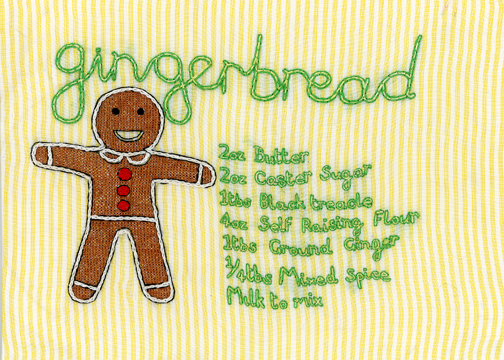 gingerbread
2oz Butter
2oz Caster Sugar
1tbs Black treacle
4oz Self Raising Flour
1tbs Ground Ginger
1/4tbs Mixed Spice
Milk to mix